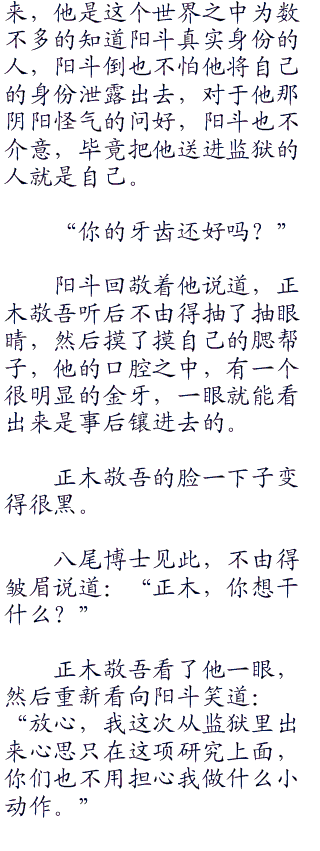 来，他是这个世界之中为数
不多的知道阳斗真实身份的
人，阳斗倒也不怕他将自己
的身份泄露出去，对于他那
阴阳怪气的问好，阳斗也不
介意，毕竟把他送进监狱的
人就是自己。
“你的牙齿还好吗？”
阳斗回敬着他说道，正
木敬吾听后不由得抽了抽眼
睛，然后摸了摸自己的腮帮
子，他的口腔之中，有一个
很明显的金牙，一眼就能看
出来是事后镶进去的。
正木敬吾的脸一下子变
得很黑。
八尾博士见此，不由得
皱眉说道：“正木，你想干
什么？”
正木敬吾看了他一眼，
然后重新看向阳斗笑道：
“放心，我这次从监狱里出
来心思只在这项研究上面，
你们也不用担心我做什么小
动作。”